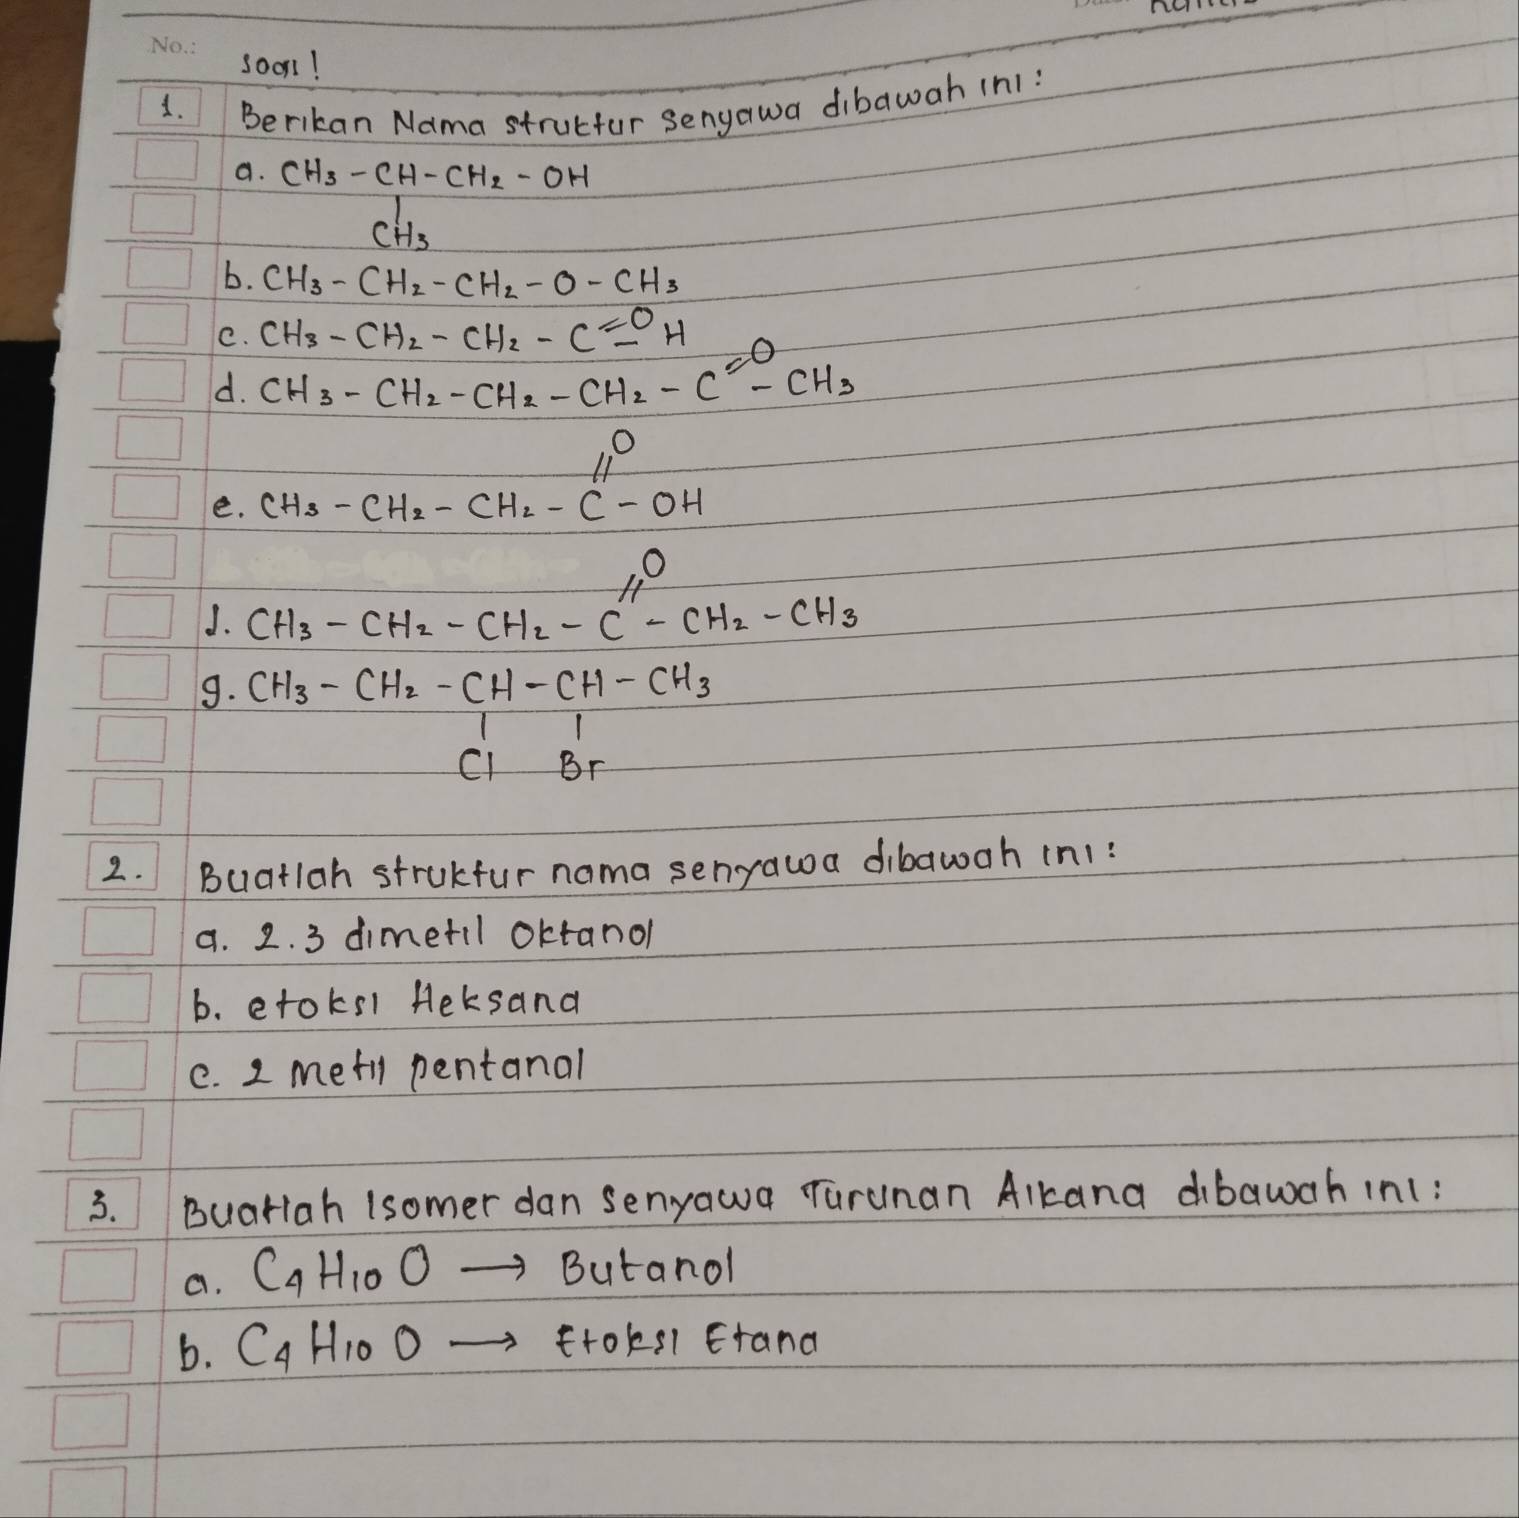 No.:
soal!
1. Berikan Nama struktur senyawa dibawah ini:
a. CH₃ - CH - CH₂ - OH
|
CH₃
b. CH₃ - CH₂ - CH₂ - O - CH₃
c. CH₃ - CH₂ - CH₂ - C =O - H
d. CH₃ - CH₂ - CH₂ - CH₂ - C =O - CH₃
O
//
e. CH₃ - CH₂ - CH₂ - C - OH
O
//
f. CH₃ - CH₂ - CH₂ - C - CH₂ - CH₃
g. CH₃ - CH₂ - CH - CH - CH₃
| |
Cl Br
2. Buatlah struktur nama senyawa dibawah ini:
a. 2.3 dimetil Oktanol
b. etoksi Heksana
c. 2 metil pentanal
3. Buatlah Isomer dan senyawa Turunan Alkana dibawah ini:
a. C₄H₁₀O → Butanol
b. C₄H₁₀O → Etoksi Etana